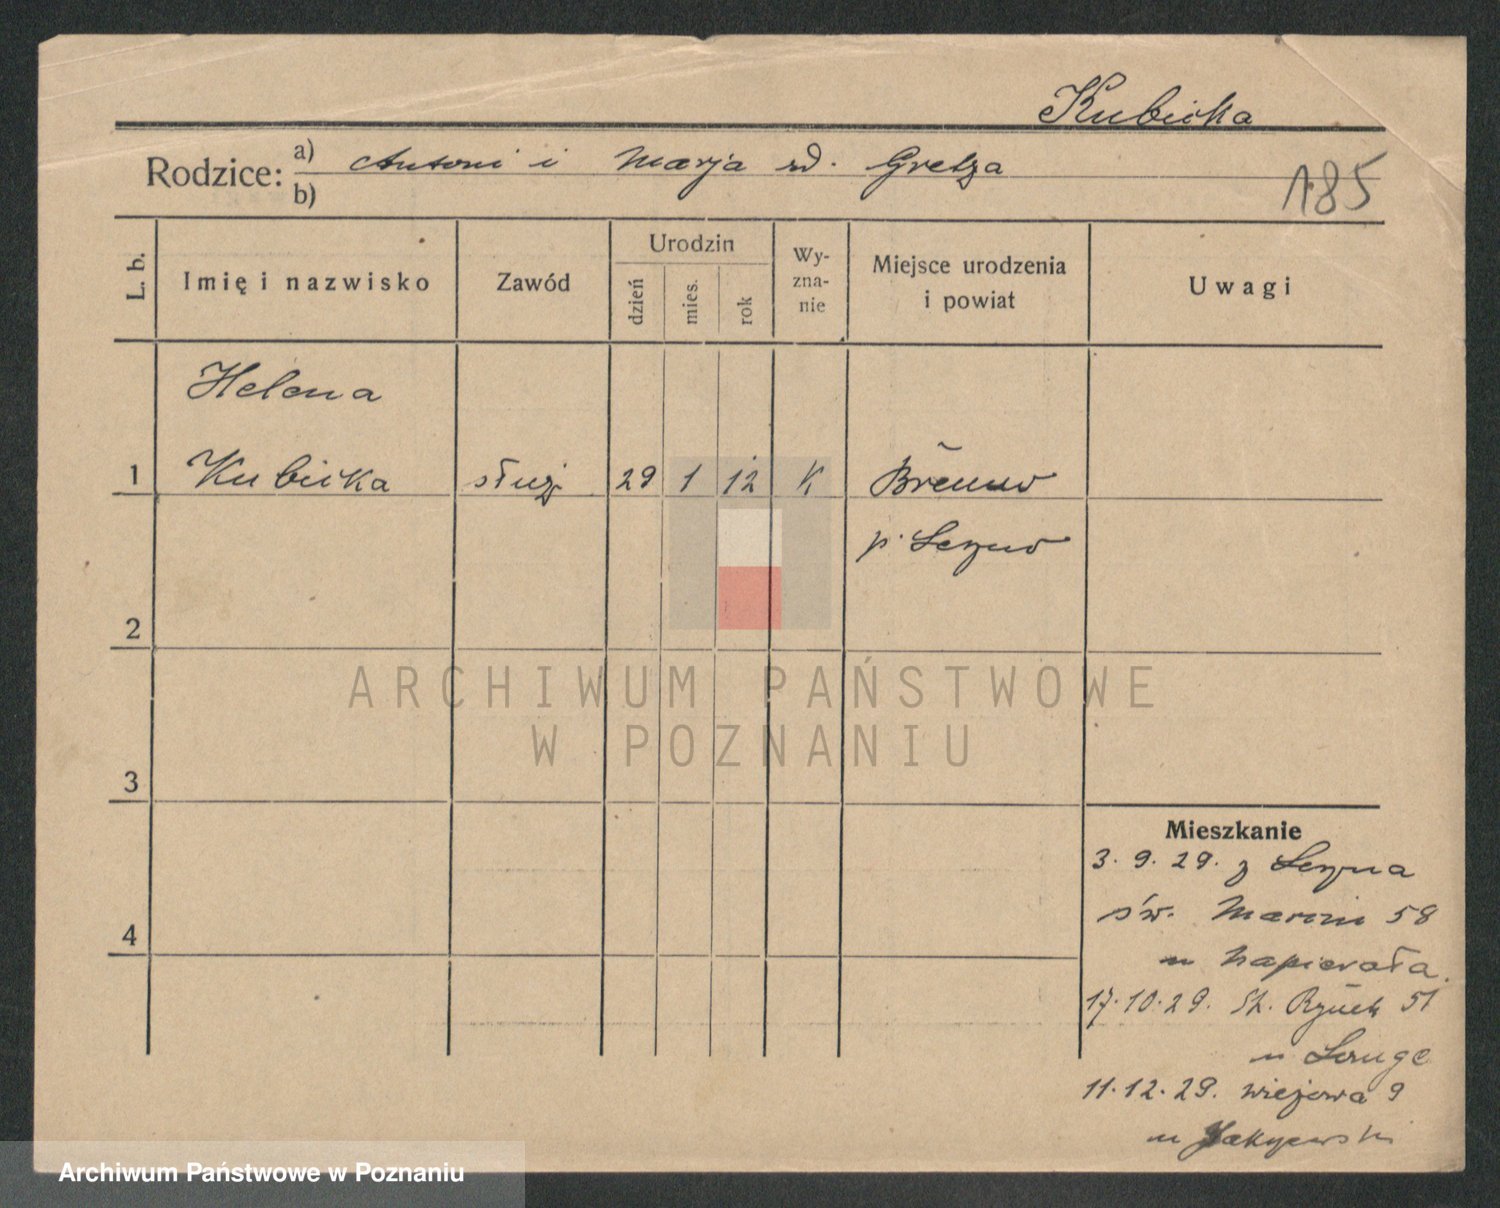 Kubicka
Rodzice: a) Antoni i Marja zd. Gretza
b)
185
L. b.
Imię i nazwisko
Zawód
Urodzin
dzień
mies.
rok
Wy-
zna-
nie
Miejsce urodzenia
i powiat
Uwagi
Helena
1 Kubicka służ 29 1 12 K
p. Leszno
2
3
4
ARCHIWUM PAŃSTWOWE
W POZNANIU
Mieszkanie
3.9.29. z Leszna
św. Marcin 58
u Napierała.
17.10.29. St. Rynek 51
u
11.12.29. Wiejowa 9
u
Archiwum Państwowe w Poznaniu